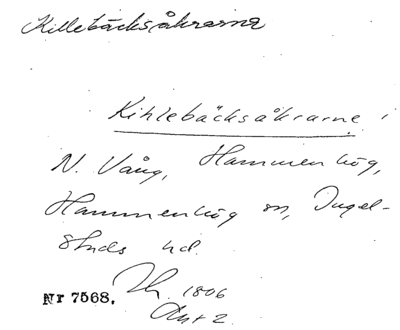 Killebäcksåkrarna
Kihlebäcksåkrarne i
N. Vång, Hammenhög,
Hammenhög sn, Ingel-
stads hd.
Nr 7568. 1806
Akt 2